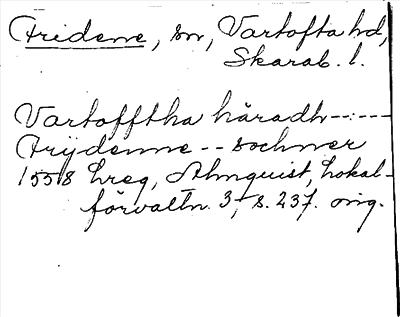 Fridene, sn, Vartofta hd,
Skarab. l.
Vartofftha häradh------
Frijdenne -- sochner
1558 hreg, Almquist, Lokal-
förvaltn. 3, s. 237. orig.